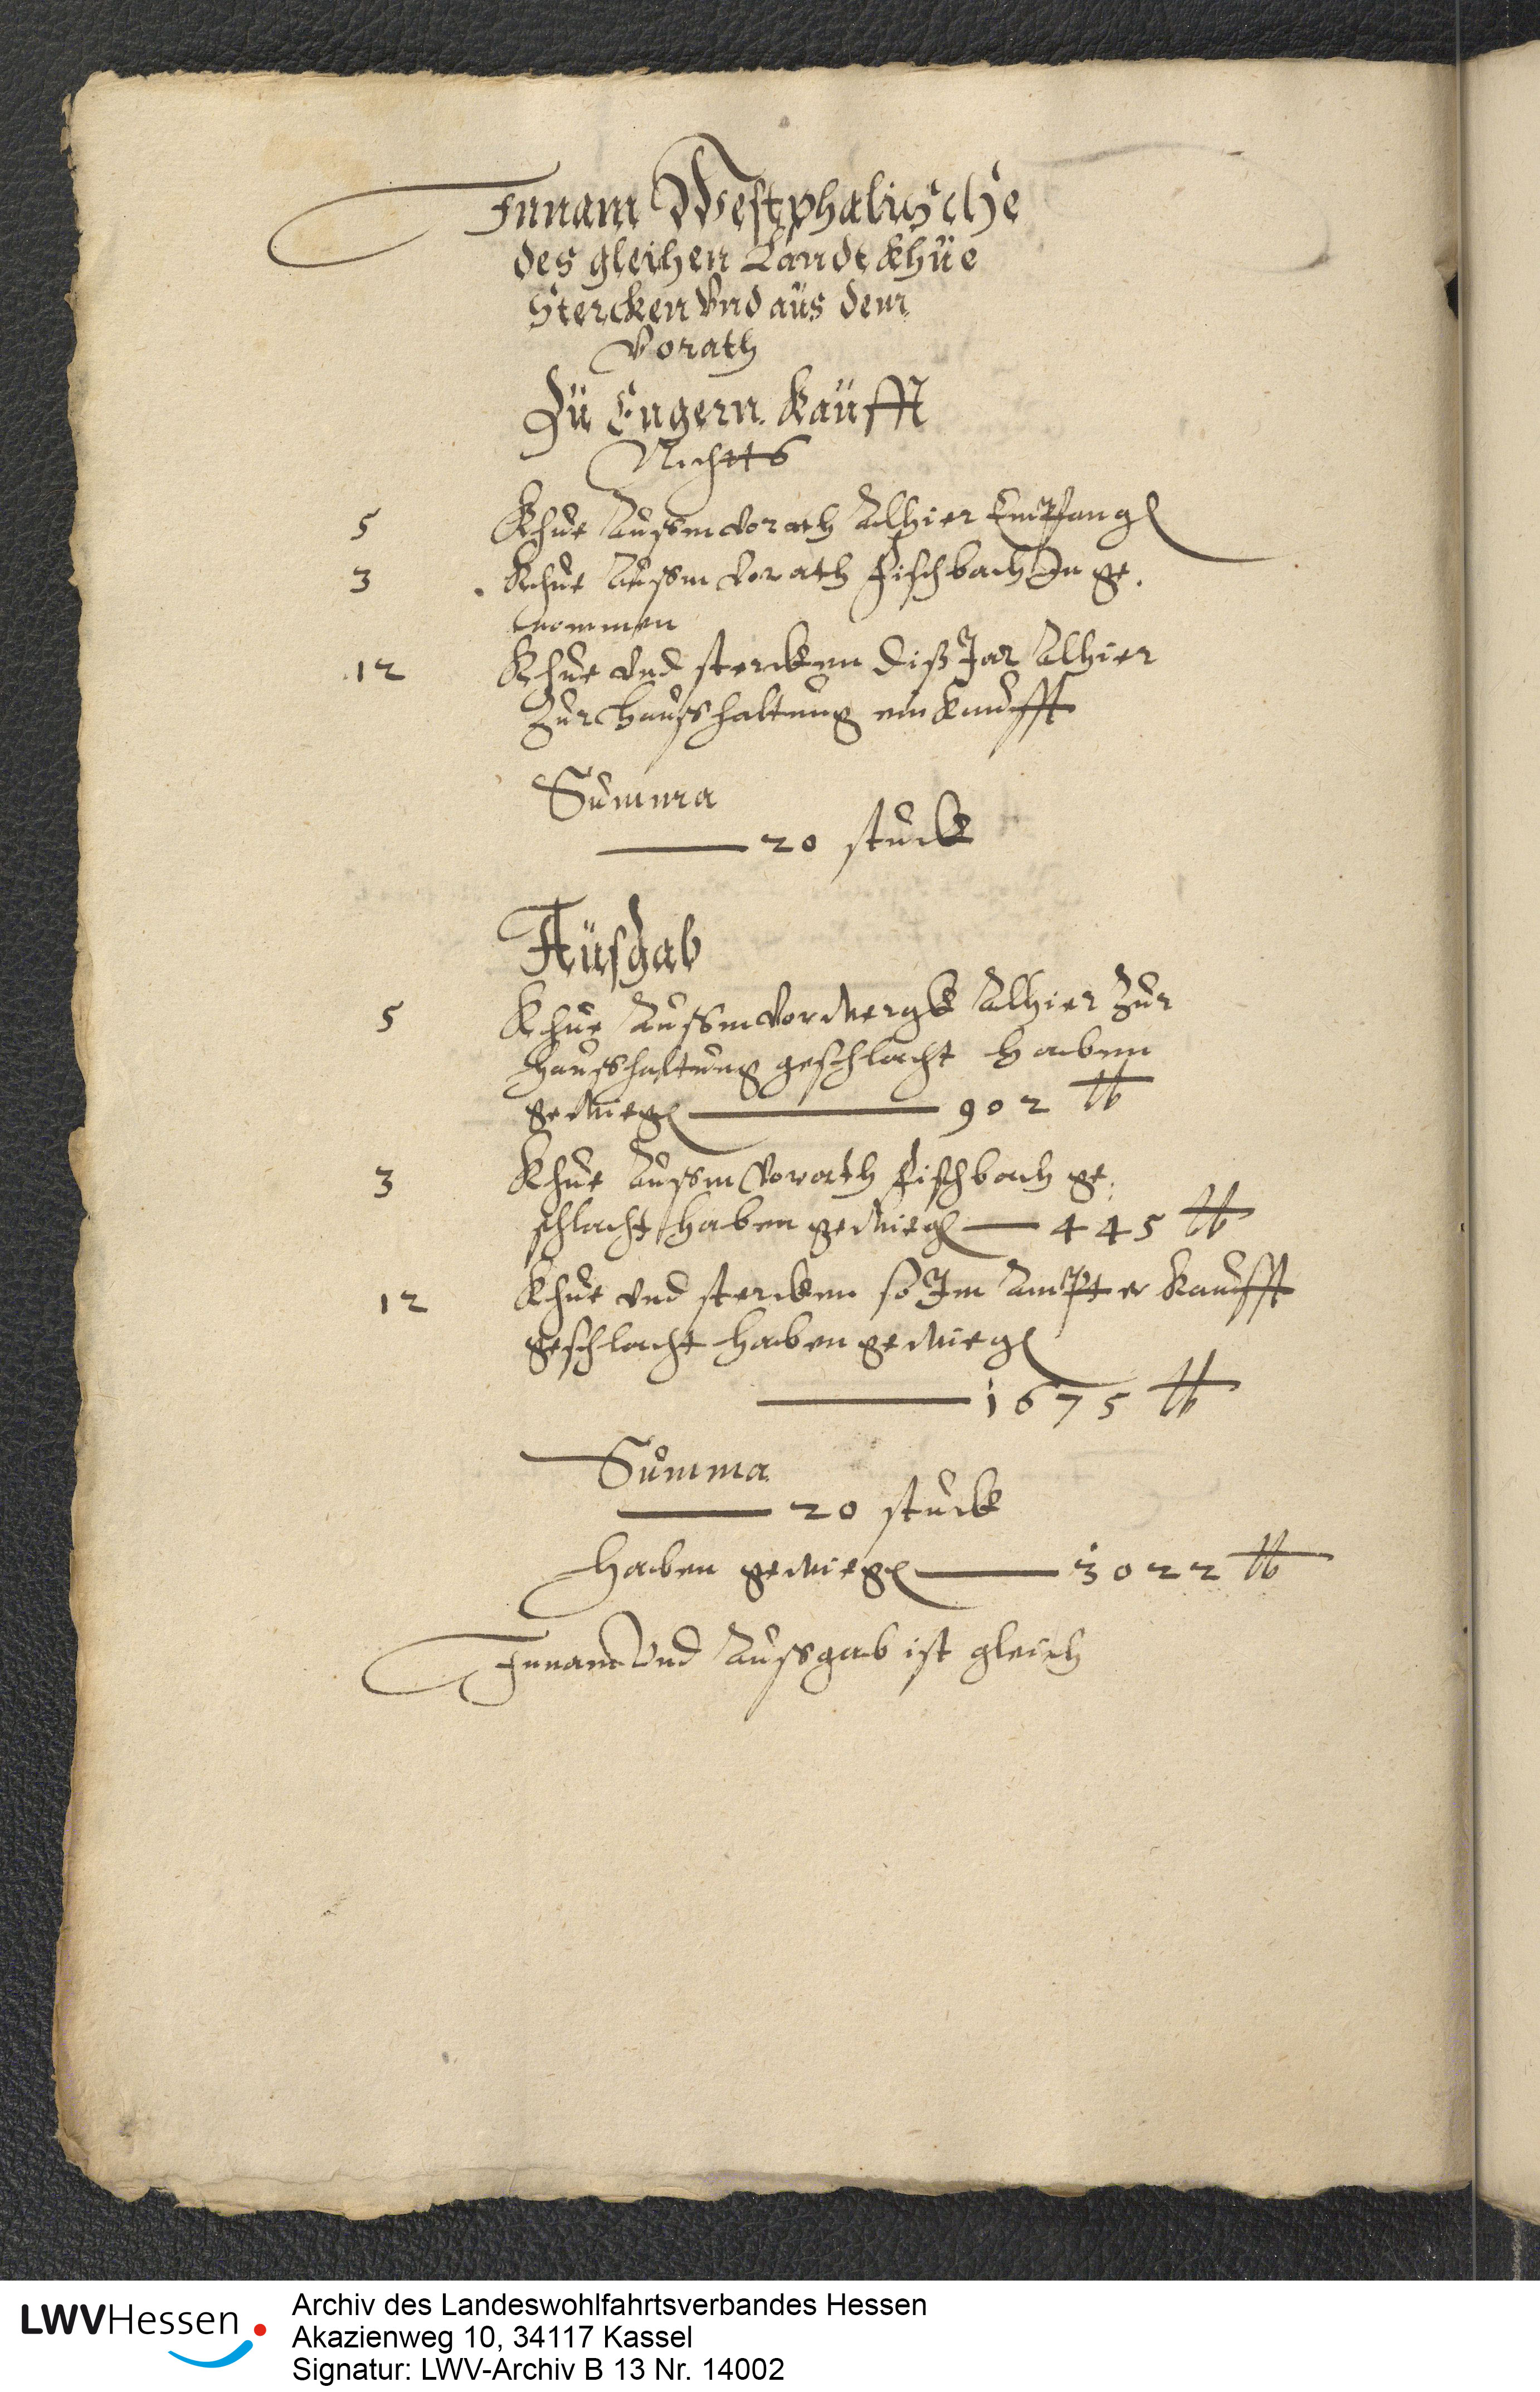 Innam Westphalische
des gleichen Landt Khüe
Stercken Vnd aus dem
Vorath
Zü Engern Kaüfft
Nichtts
5 Khüe Aussm Vorath Alhier Empfangen
3 Khüe Aussm Vorath Fischbach In ge,
nommen
12 Khüe Vnd stercken diß Jar Alhier
Zur Haußhaltung ein Kaufft
Summa
20 stuck
Aüsgab
5 Khüe Aussm Vorwergk Alhier Zur
Haußhaltung geschlacht haben
gewiegen 902 lb
3 Khüe Aussm Vorath Fischbach ge,
schlacht haben gewiegen 445 lb
12 Khüe Vnd stercken so Im Ampt er Kaufft
geschlacht haben gewiegen
1675 lb
Summa
20 stuck
haben gewiegen 3022 lb
Innam Vnd Aussgab ist gleich
LWVHessen
Archiv des Landeswohlfahrtsverbandes Hessen
Akazienweg 10, 34117 Kassel
Signatur: LWV-Archiv B 13 Nr. 14002